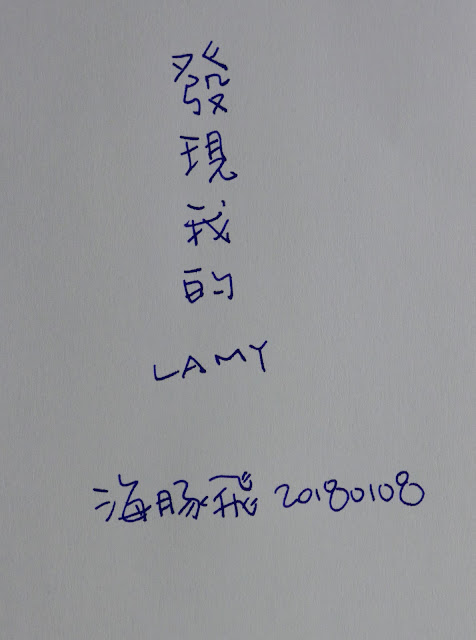 發現我的
LAMY
海豚飛 20180108